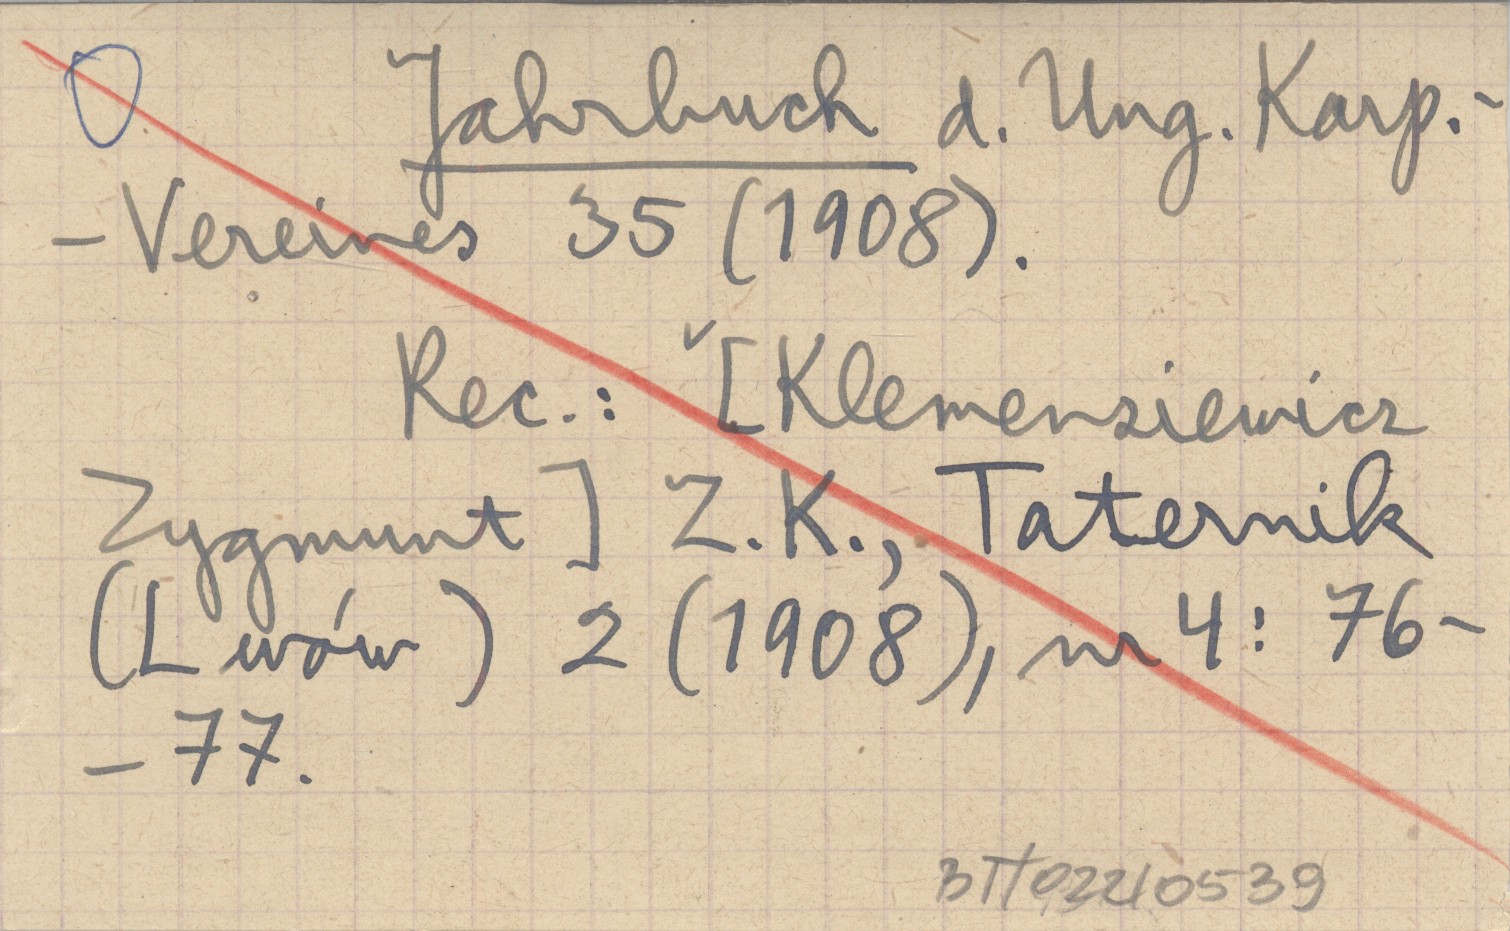 Jahrbuch d. Ung. Karp.-
-Vereines 35 (1908).
Rec.: ˇ[Klemensiewicz
Zygmunt] Z.K., Taternik
(Lwów) 2 (1908), nr 4: 76-
-77.
BTH022/0539